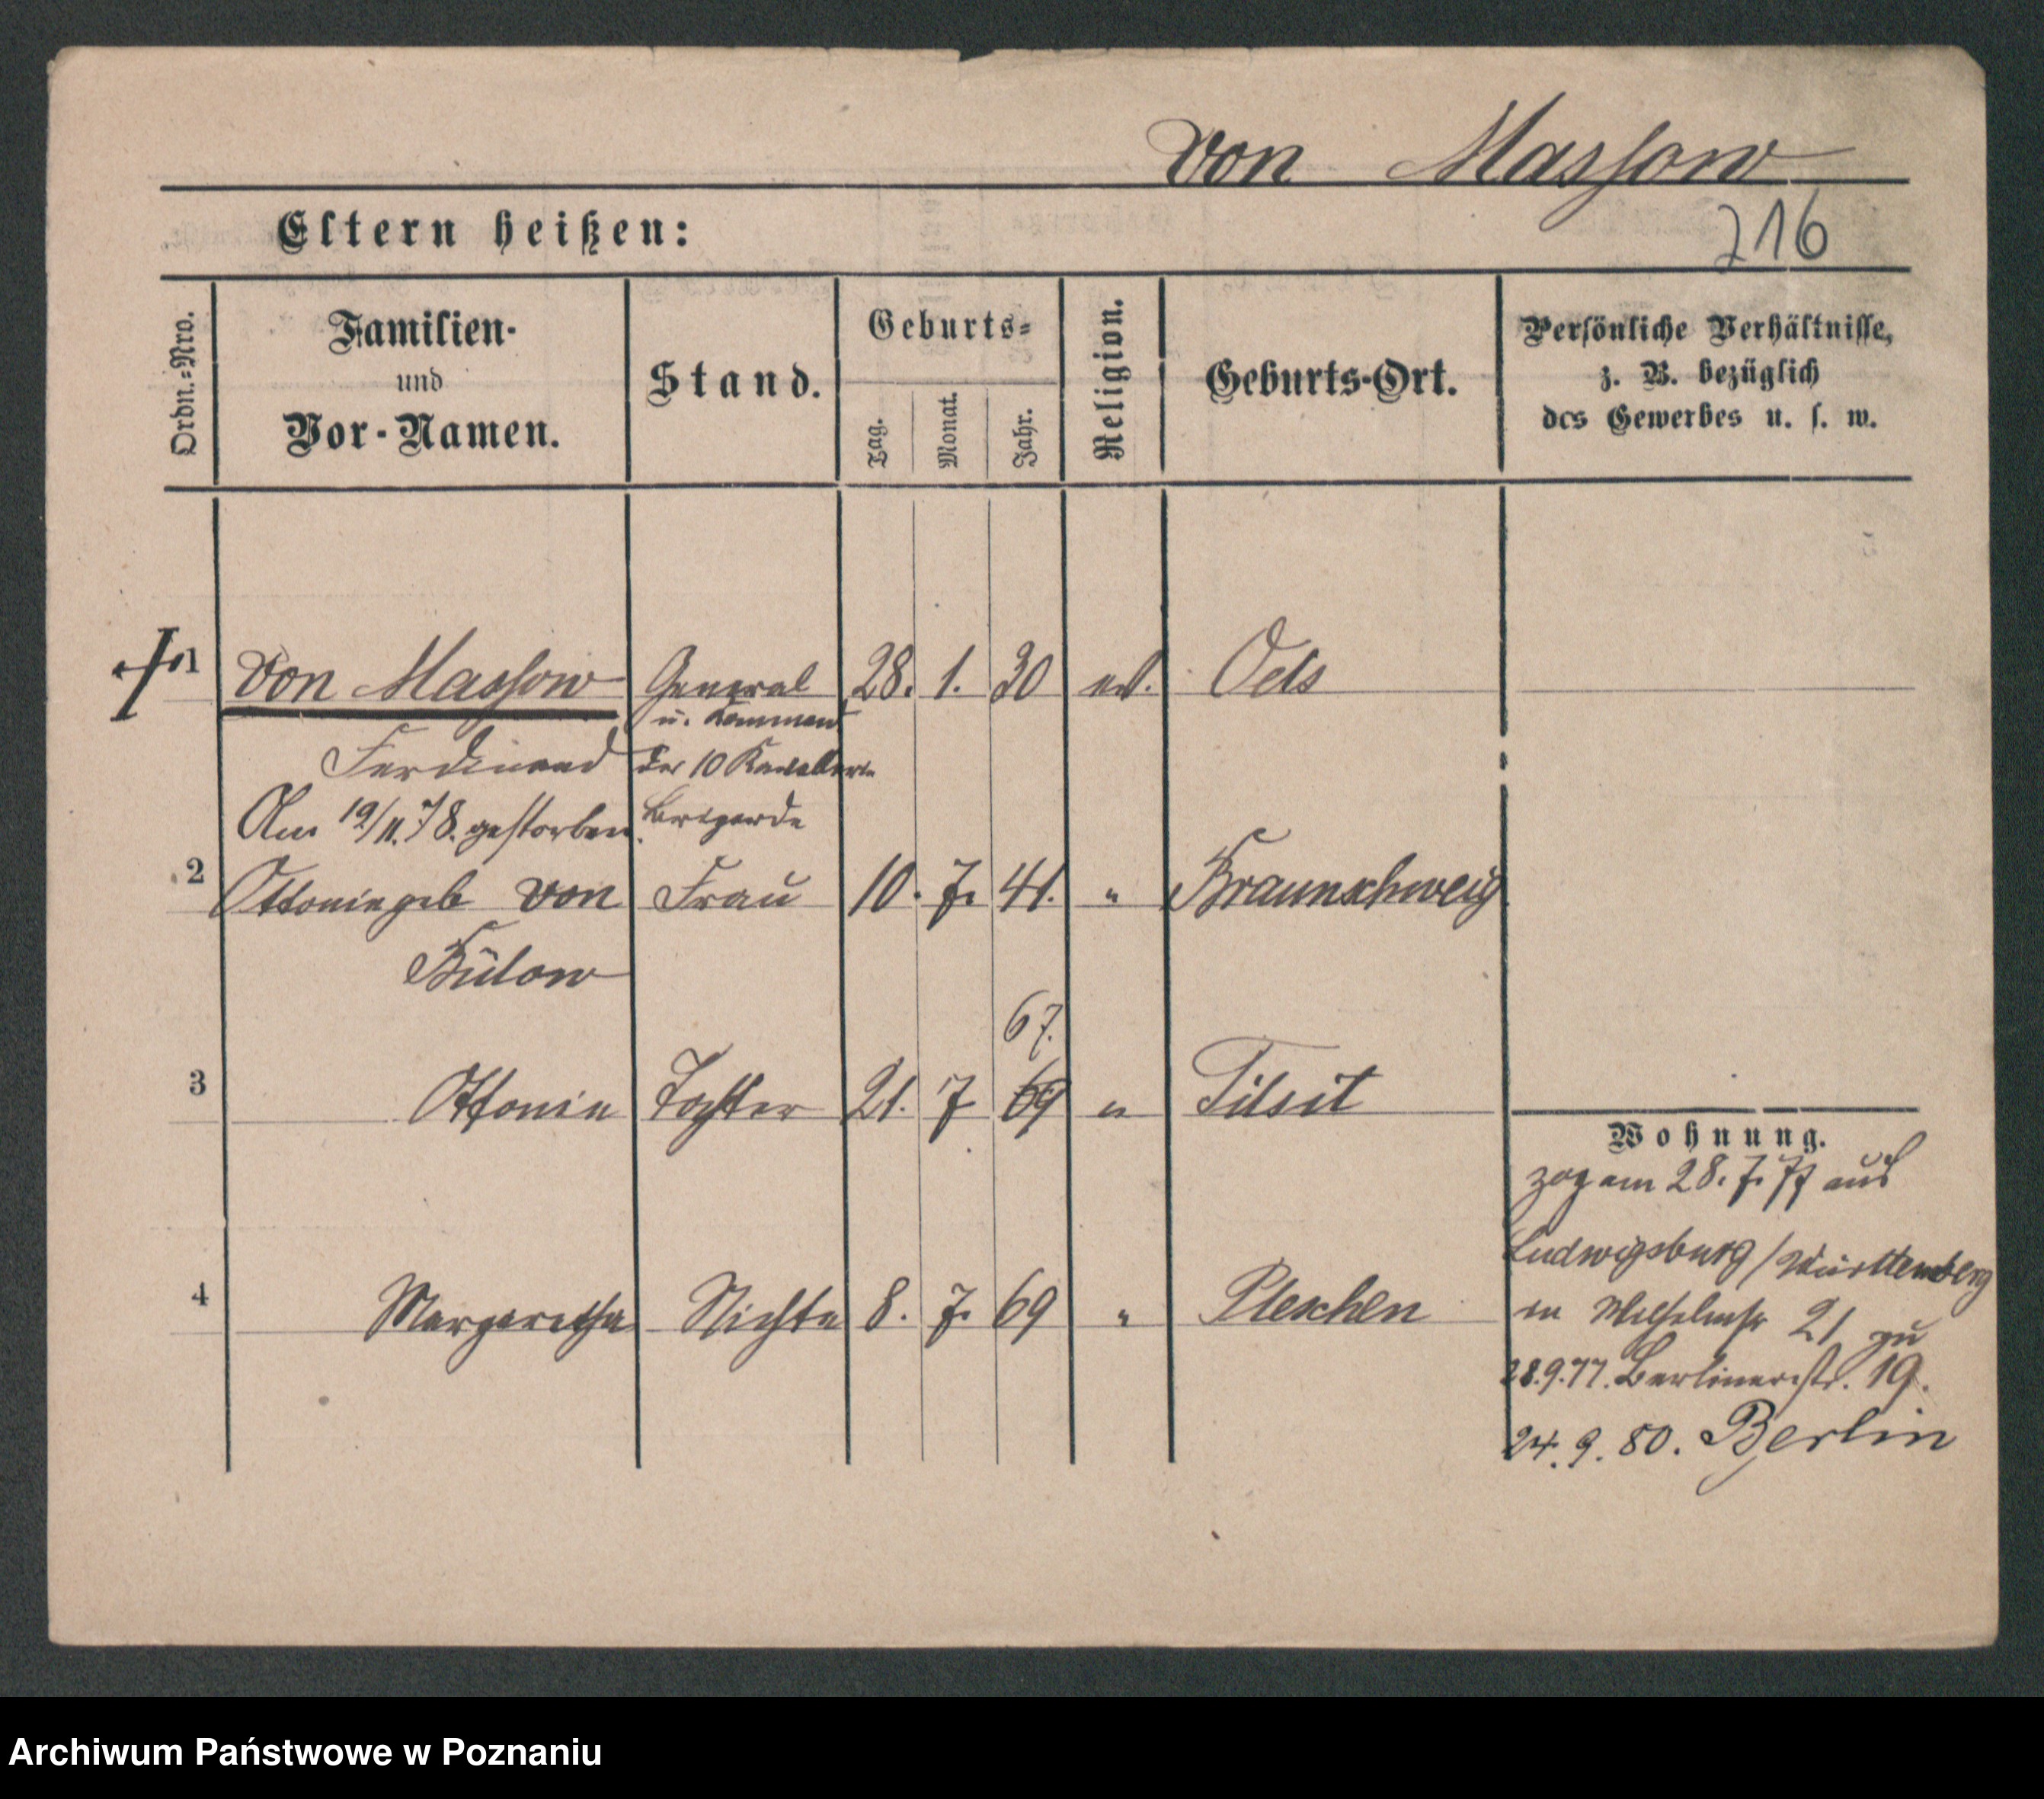 von Massow
216
Eltern heißen:
Ordn.-Nro.
Familien-
und
Vor-Namen.
Stand.
Geburts-
Tag.
Monat.
Jahr.
Religion.
Geburts-Ort.
Persönliche Verhältnisse,
z. B. bezüglich
des Gewerbes u. s. w.
1 von Massow General 28. 1. 30 ev. Oels
u. Kommand
Ferdinand der 10 Kavallerie
Am 19/11.78. gestorben. Brigarde
2 Ottonie geb von Frau 10. 7. 41. " Braunschweig
Bülow
67.
3 Ottonie Tochter 21. 7 69 " Tilsit
Wohnung.
zog am 28. 7. 77 aus
Ludwigsburg / Württemberg
4 Margarethe Nichte 8. 7. 69 " Pleschen
in Wilhelmstr 21 zu
28.9.77. Berlinerstr. 19.
24. 9. 80. Berlin
Archiwum Państwowe w Poznaniu